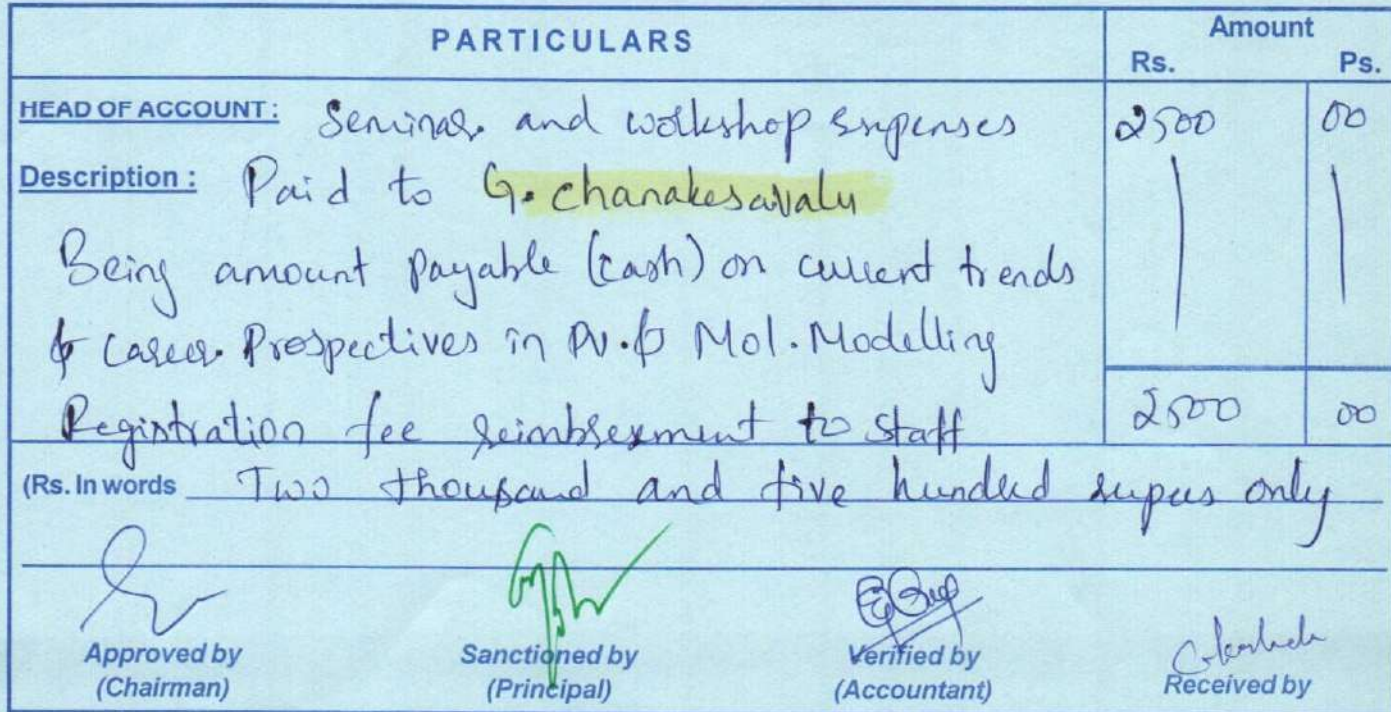 PARTICULARS Amount
Rs. Ps.
HEAD OF ACCOUNT : Seminar and workshop expenses 2500 00
Description : Paid to G. chanakesavalu
Being amount payable (cash) on current trends
& Career Prospectives in & Mol. Modelling
Registration fee to staff 2500 00
(Rs. In words Two thousand and five hundred rupees only
Approved by Sanctioned by Verified by Received by
(Chairman) (Principal) (Accountant)